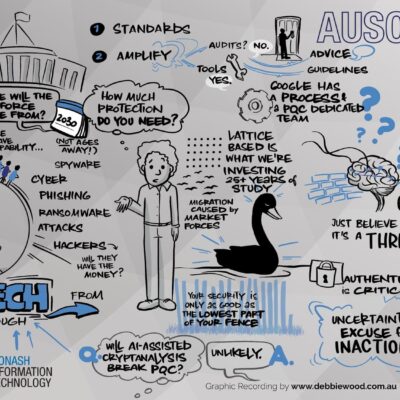 1 STANDARDS
2 AMPLIFY
AUDITS? NO.
TOOLS
YES.
ADVICE
GUIDELINES
AUSC
WILL THE
FORCE
FROM?
2030
(NOT AGES
AWAY?)
HOW MUCH
PROTECTION
DO YOU NEED?
GOOGLE HAS
A PROCESS &
A PQC DEDICATED
TEAM
SPYWARE
CYBER
PHISHING
RANSOMWARE
ATTACKS
HACKERS
WILL THEY
HAVE THE
MONEY?
LATTICE
BASED IS
WHAT WE'RE
INVESTING
25+ YEARS OF
STUDY
MIGRATION
CAUSED BY
MARKET
FORCES
JUST BELIEVE
IT'S A THR
AUTHENT
IS CRITIC
YOUR SECURITY IS
ONLY AS GOOD AS
THE LOWEST PART
OF YOUR FENCE
TECH
FROM
OUGH
UNCERTAINT
EXCUSE F
INACTIO
MONASH
INFORMATION
TECHNOLOGY
Q. WILL AI-ASSISTED
CRYPTANALYSIS
BREAK PQC?
UNLIKELY. A.
Graphic Recording by www.debbiewood.com.au